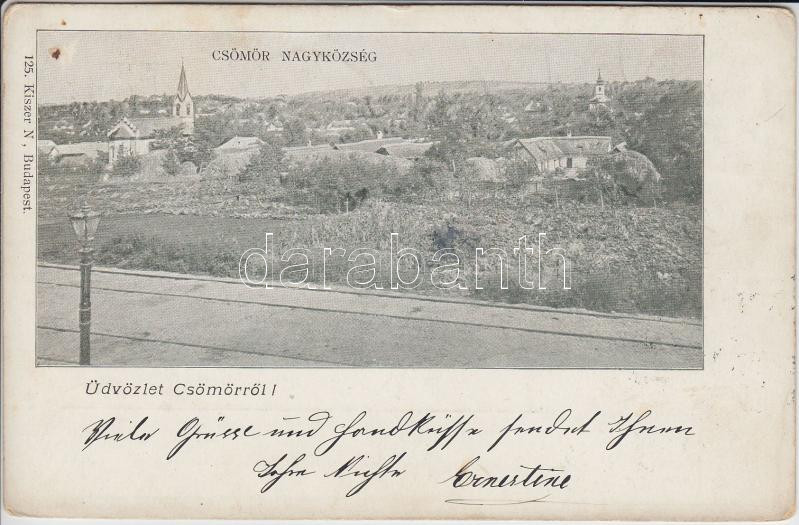 CSÖMÖR NAGYKÖZSÉG
125. Kiszer N, Budapest.
darabanth
Üdvözlet Csömörről!
Viele Grüsse und Handküsse sendet Ihnen
Ihre Nichte Ernestine